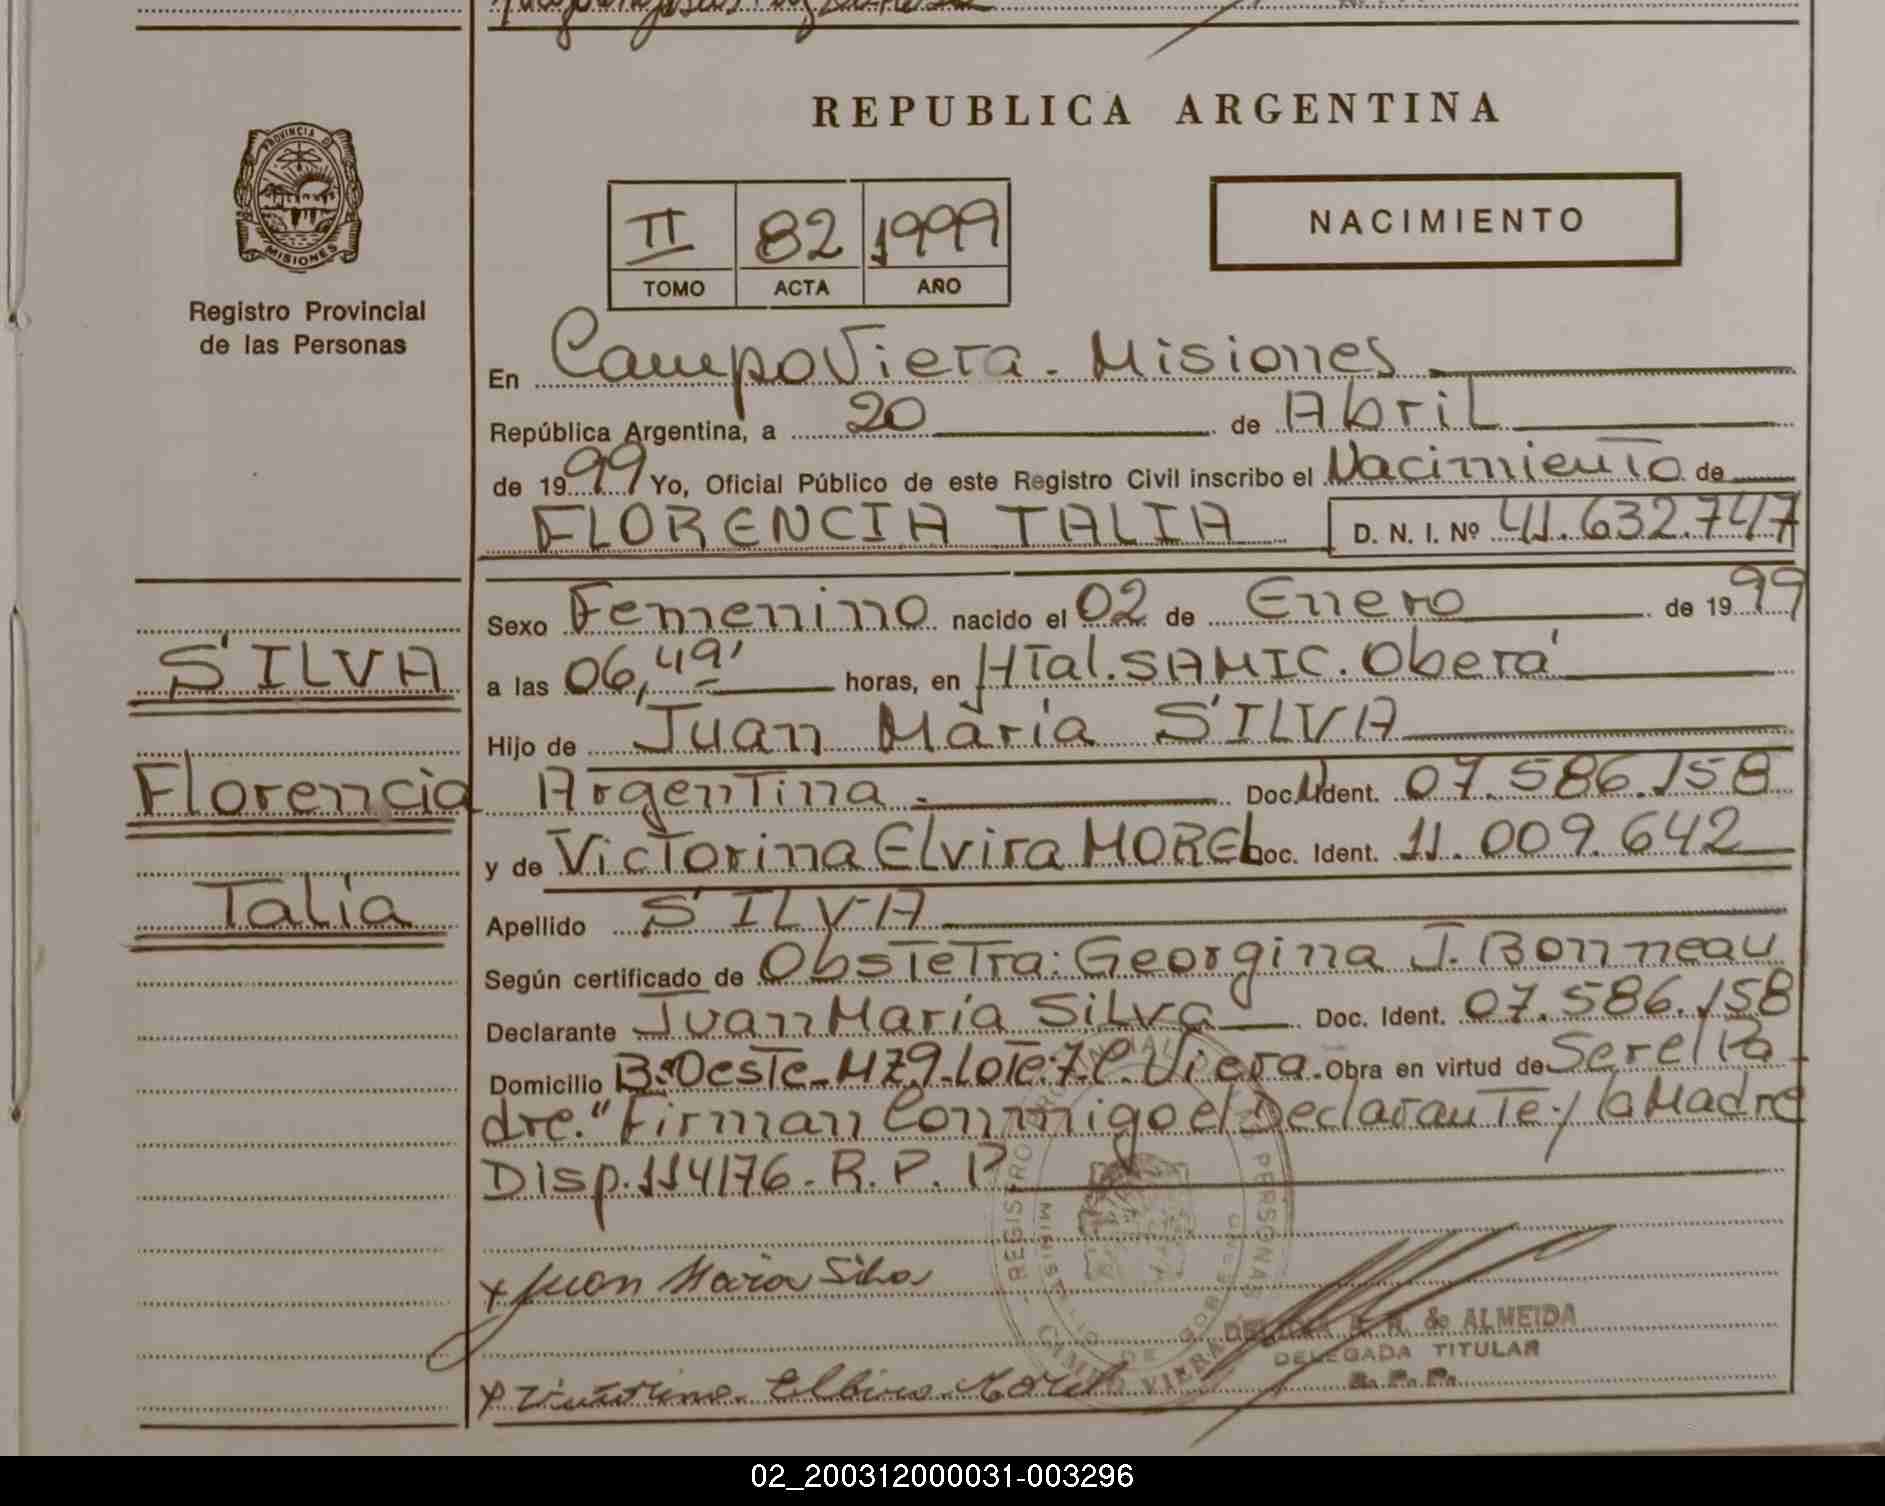 REPUBLICA ARGENTINA
PROVINCIA D
MISIONES
Registro Provincial
de las Personas
II 82 1999
TOMO ACTA AÑO
NACIMIENTO
En Campo Viera - Misiones
República Argentina, a 20 de Abril
de 1999 Yo, Oficial Público de este Registro Civil inscribo el Nacimiento de
FLORENCIA TALIA D. N. I. Nº 41.632.747
Sexo Femenino nacido el 02 de Enero de 1999
SILVA
a las 06,49' horas, en Htal. SAMIC. Oberá
Hijo de Juan María SILVA
Florencia
Argentina.- Doc. Ident. 07.586.158
y de Victorina Elvira MOREL Doc. Ident. 11.009.642
Talia
Apellido SILVA
Según certificado de Obstetra: Georgina J. Bonneau
Declarante Juan María Silva Doc. Ident. 07.586.158
Domicilio B:º Oeste-MZ9-Lote:7-C. Viera. Obra en virtud de Ser el Pa-
dre." Firman Conmigo el Declarante y la Madre
Disp. 114/76. R. P. P.
REGISTRO PROVINCIAL DE LAS PERSONAS
MINISTERIO DE GOBIERNO
CAMPO VIERA
x Juan María Silva
de ALMEIDA
DELEGADA TITULAR
R. P. P.
x Victorina Elvira Morel
02_200312000031-003296